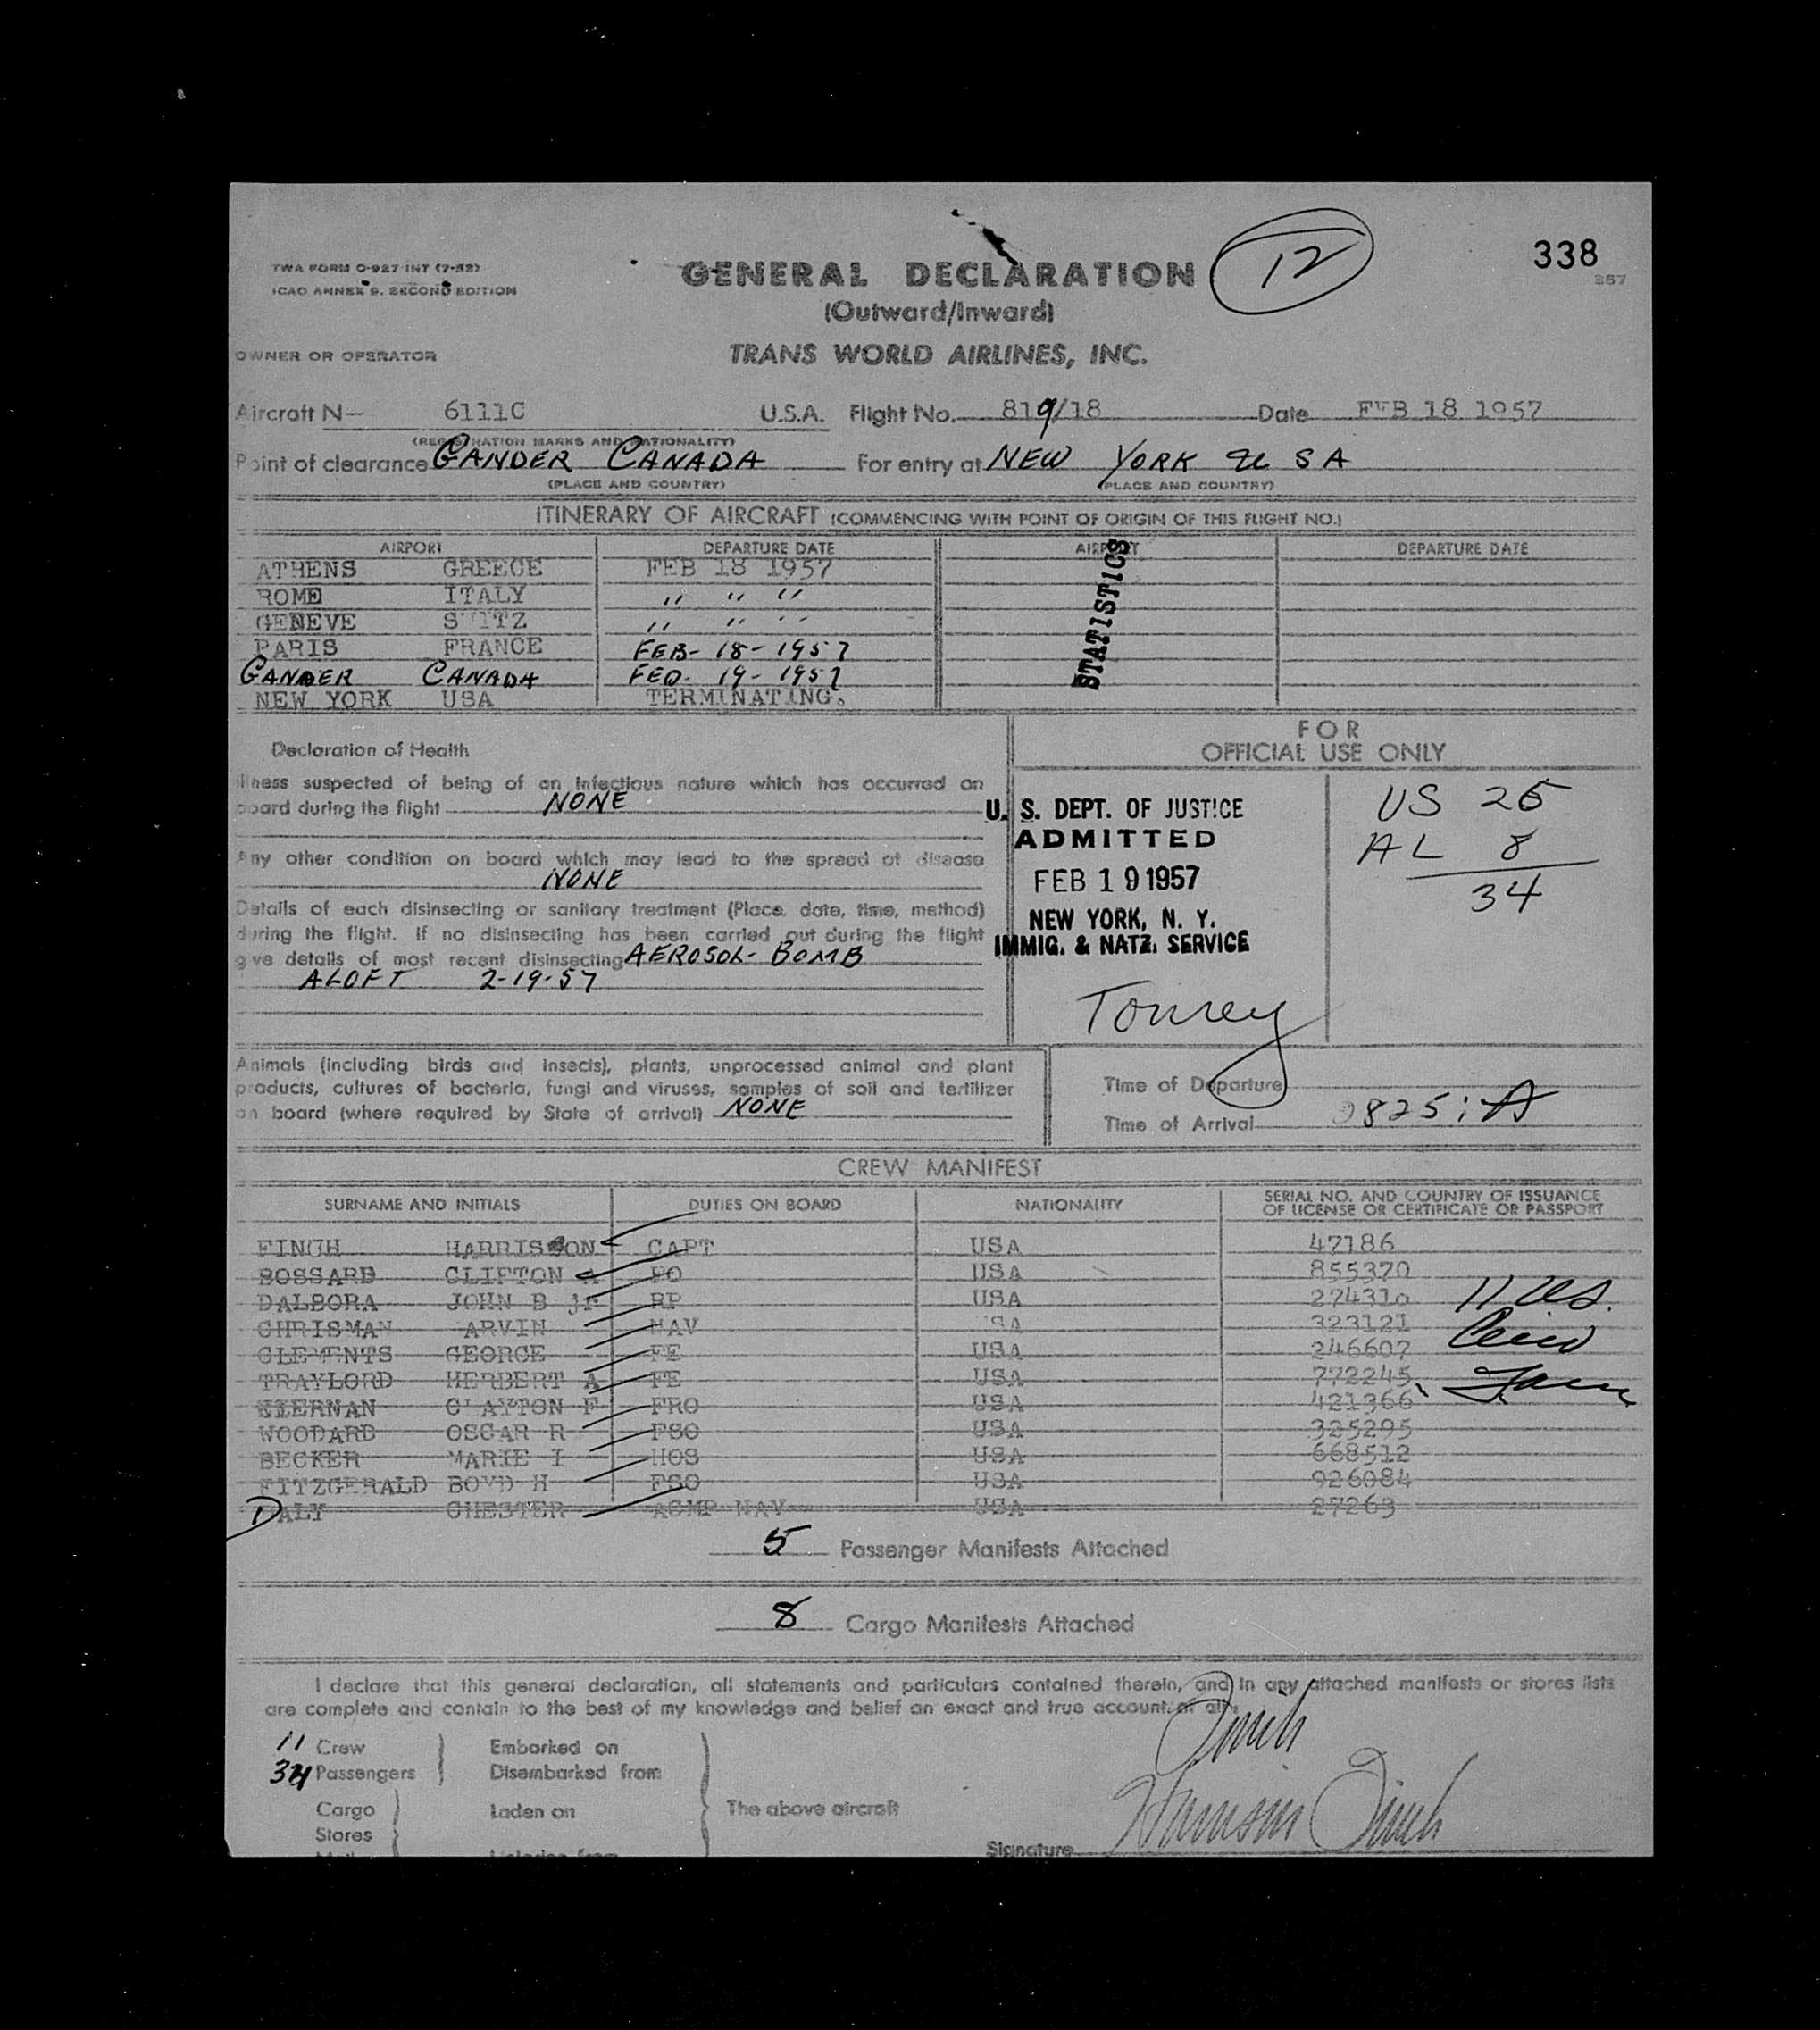 338
12
867
TWA FORM O-927 INT (7-52)
ICAO ANNEX 9. SECOND EDITION
GENERAL DECLARATION
(Outward/Inward)
OWNER OR OPERATOR
TRANS WORLD AIRLINES, INC.
Aircraft N— 6111C U.S.A. Flight No. 819/18 Date FEB 18 1957
(REGISTRATION MARKS AND NATIONALITY)
Point of clearance GANDER CANADA For entry at NEW YORK U S A
(PLACE AND COUNTRY) (PLACE AND COUNTRY)
ITINERARY OF AIRCRAFT (COMMENCING WITH POINT OF ORIGIN OF THIS FLIGHT NO.)
AIRPORT DEPARTURE DATE AIRPORT DEPARTURE DATE
ATHENS GREECE FEB 18 1957
ROME ITALY " " "
GENEVE SWITZ " " "
PARIS FRANCE FEB- 18- 1957
GANDER CANADA FEB. 19- 1957
NEW YORK USA TERMINATING.
STATISTICS
Declaration of Health
Illness suspected of being of an infectious nature which has occurred on
board during the flight NONE
Any other condition on board which may lead to the spread of disease
NONE
Details of each disinsecting or sanitary treatment (Place, date, time, method)
during the flight. If no disinsecting has been carried out during the flight
give details of most recent disinsecting AEROSOL- BOMB
ALOFT 2-19-57
FOR
OFFICIAL USE ONLY
U. S. DEPT. OF JUSTICE
ADMITTED
FEB 19 1957
NEW YORK, N. Y.
IMMIG. & NATZ. SERVICE
US 26
AL 8
34
Animals (including birds and insects), plants, unprocessed animal and plant
products, cultures of bacteria, fungi and viruses, samples of soil and fertilizer
on board (where required by State of arrival) NONE
Time of Departure
Time of Arrival 0825 : A
CREW MANIFEST
SURNAME AND INITIALS DUTIES ON BOARD NATIONALITY SERIAL NO. AND COUNTRY OF ISSUANCE
OF LICENSE OR CERTIFICATE OR PASSPORT
FINCH HARRISON CAPT USA 47186
BOSSARD CLIFTON A FO USA 855370
DALBORA JOHN B jr RP USA 274310
CHRISMAN ARVIN NAV USA 323121
CLEMENTS GEORGE FE USA 246607
TRAYLORD HERBERT A FE USA 772245
KIERNAN CLAYTON F FRO USA 421366
WOODARD OSCAR R FSO USA 325295
BECKER MARIE I HOS USA 668512
FITZGERALD BOYD H FSO USA 926084
DALY CHESTER ACMP NAV USA 27263
11 US.
5 Passenger Manifests Attached
8 Cargo Manifests Attached
I declare that this general declaration, all statements and particulars contained therein, and in any attached manifests or stores lists
are complete and contain to the best of my knowledge and belief an exact and true account of all
11 Crew Embarked on
34 Passengers Disembarked from
Cargo Laden on The above aircraft
Stores
Finch
Signature Harrison Finch